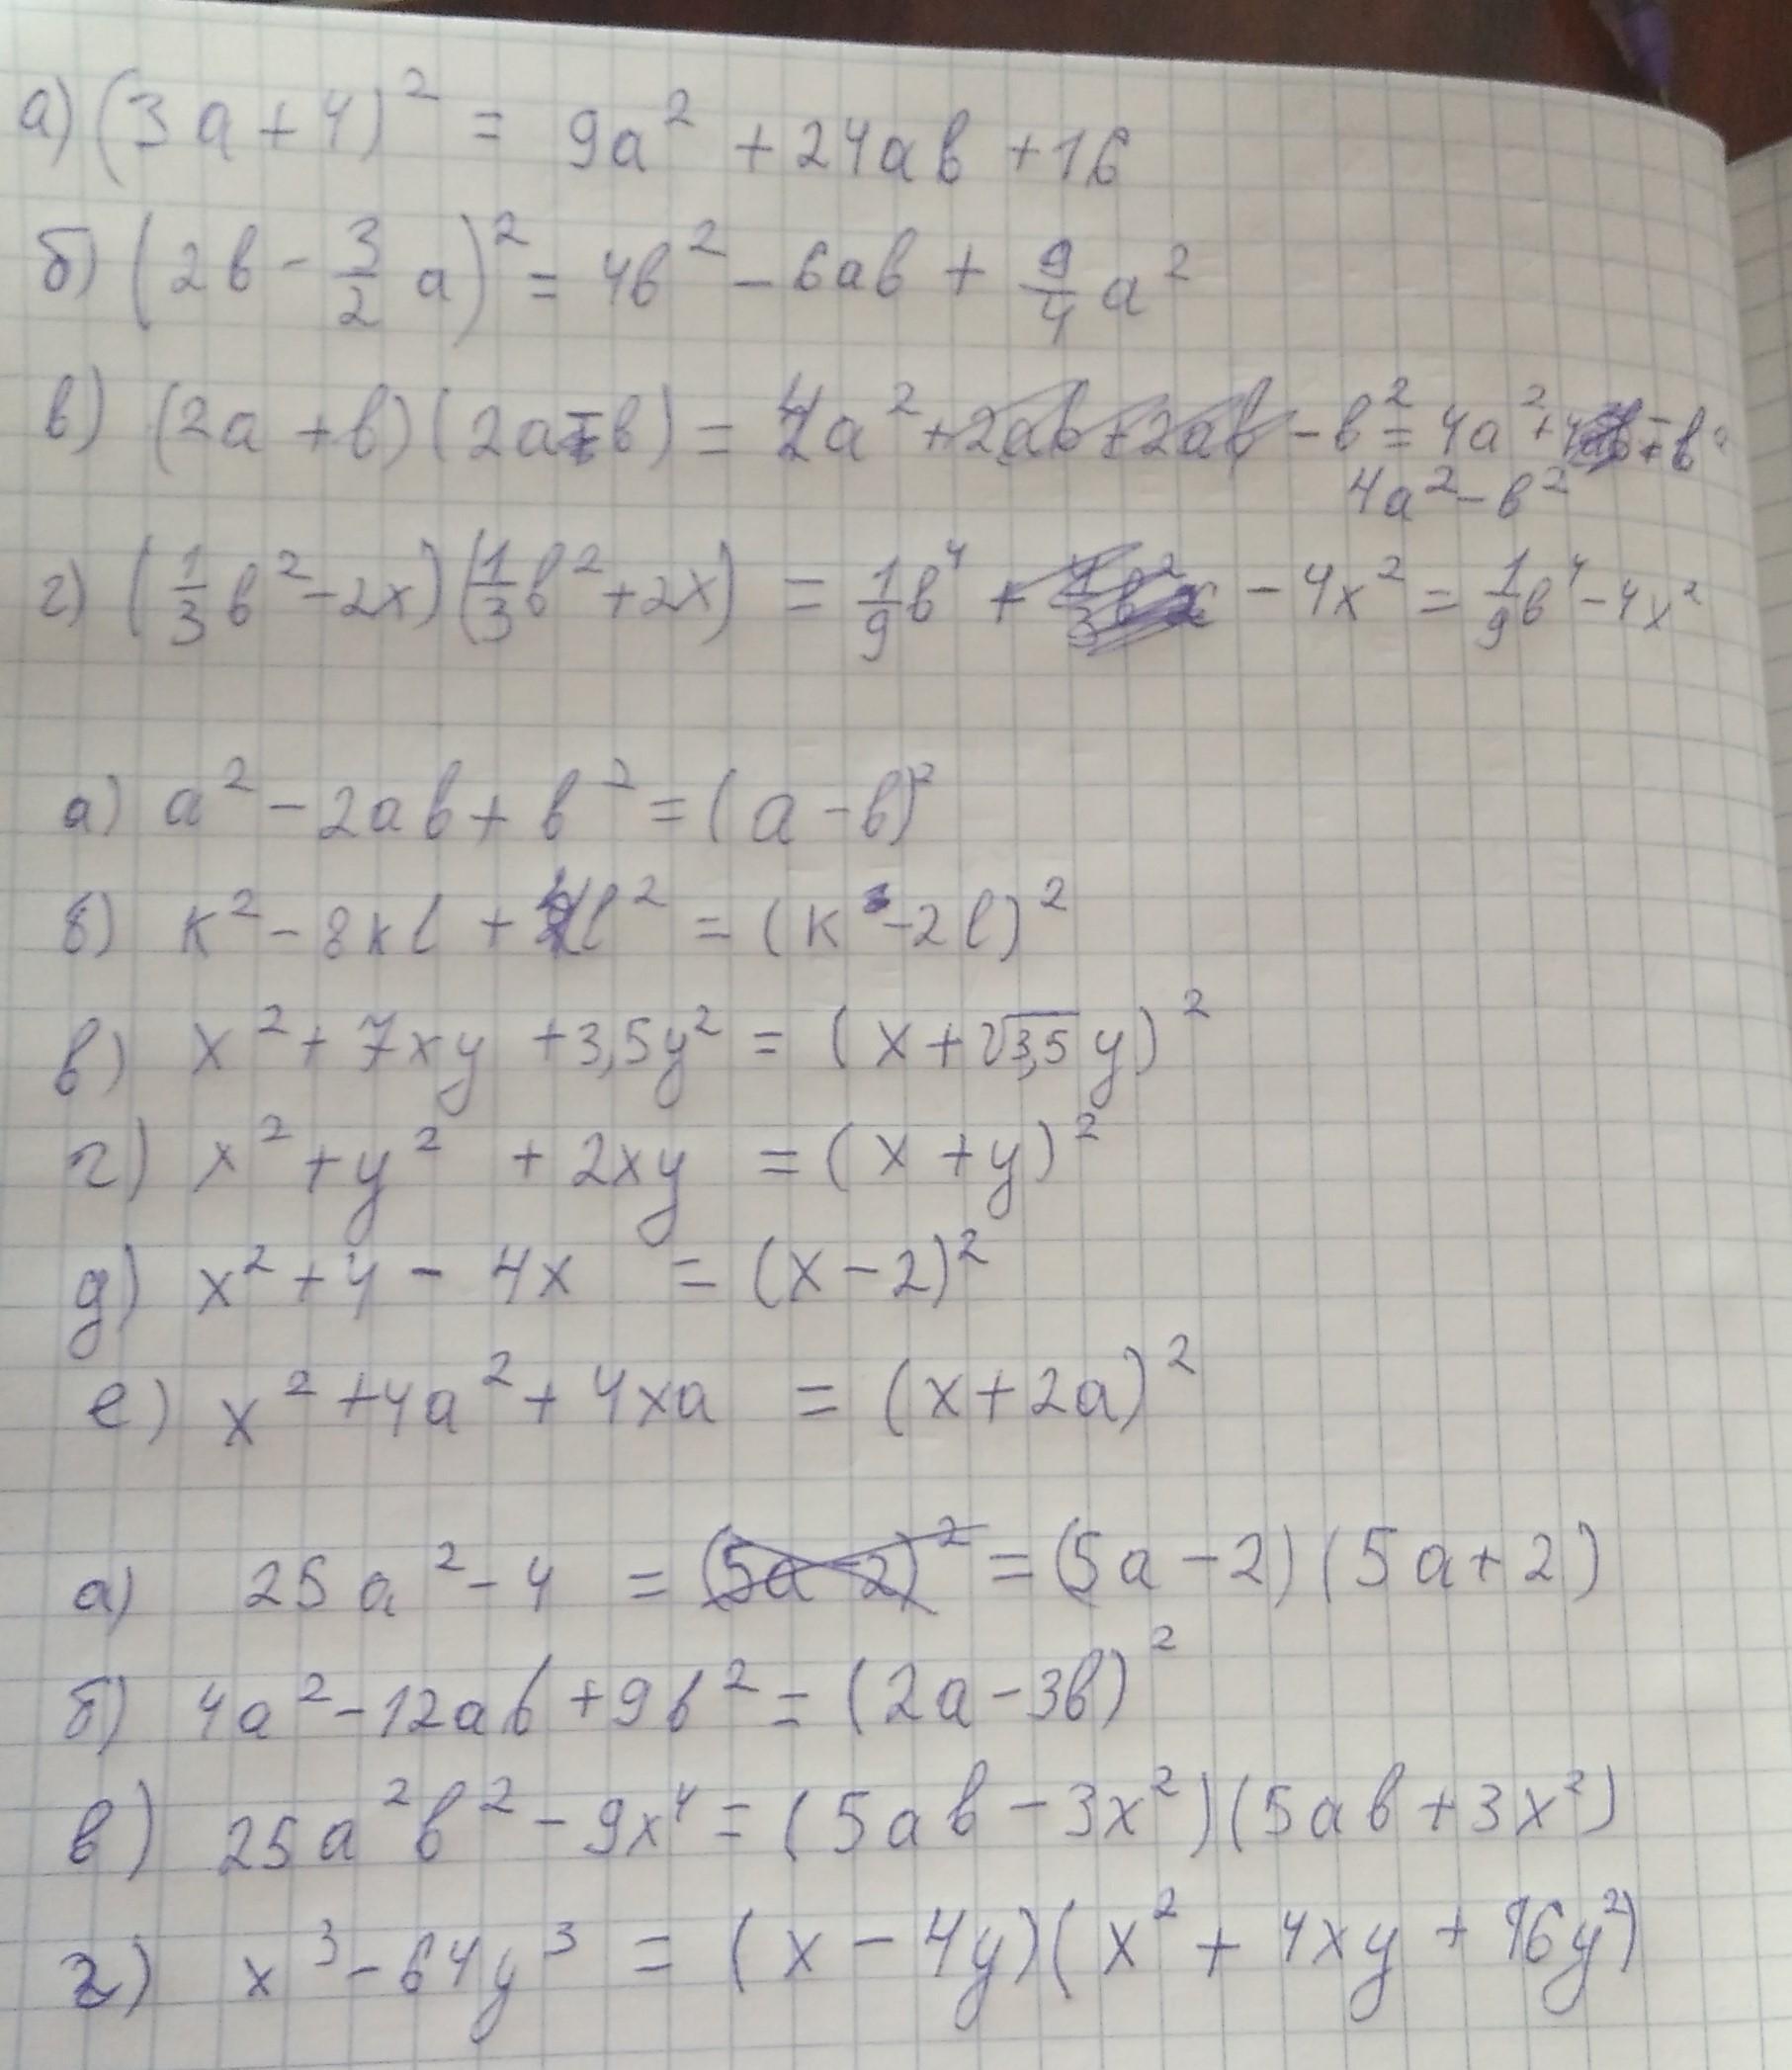 а) (3a+4)² = 9a² + 24ab + 16
б) (2b - 3/2 a)² = 4b² - 6ab + 9/4 a²
в) (2a + b)(2a - b) = 4a² + 2ab + 2ab - b² = 4a² - b²
4a² - b²
г) (1/3 b² - 2x)(1/3 b² + 2x) = 1/9 b⁴ - 4x² = 1/9 b⁴ - 4x²
а) a² - 2ab + b² = (a - b)²
б) k² - 8kl + 4l² = (k - 2l)²
в) x² + 7xy + 3,5y² = (x + √3,5 y)²
г) x² + y² + 2xy = (x + y)²
д) x² + 4 - 4x = (x - 2)²
е) x² + 4a² + 4xa = (x + 2a)²
а) 25a² - 4 = (5a - 2)² = (5a - 2)(5a + 2)
б) 4a² - 12ab + 9b² = (2a - 3b)²
в) 25a²b² - 9x⁴ = (5ab - 3x²)(5ab + 3x²)
г) x³ - 64y³ = (x - 4y)(x² + 4xy + 16y²)